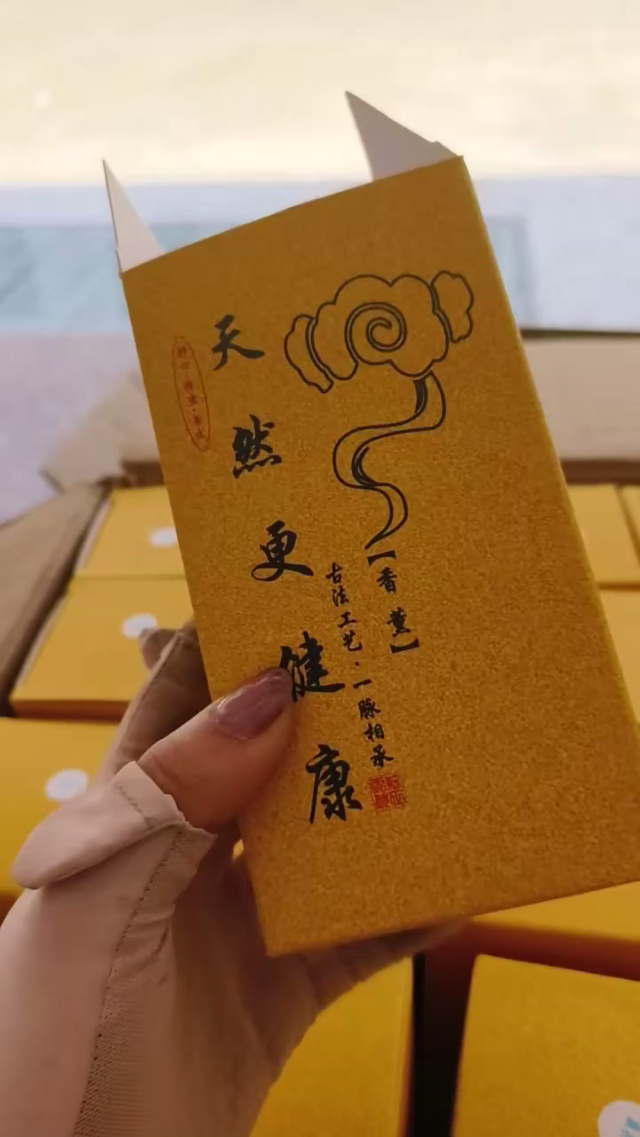 天然更健康
【香薰】
古法工艺·一脉相承